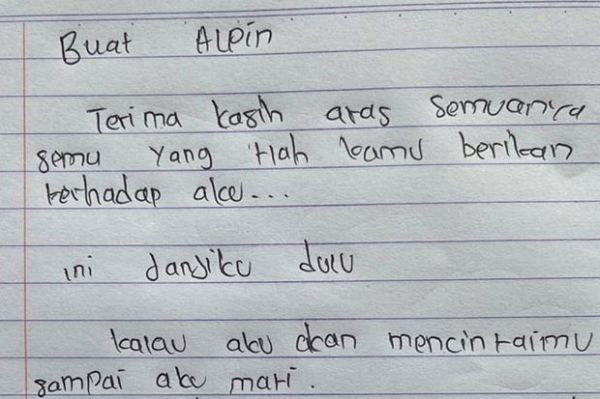 Buat Alpin
Terima kasih atas semuanya
semu yang tlah kamu berikan
terhadap aku...
ini janjiku dulu
kalau aku akan mencintaimu
sampai aku mati.